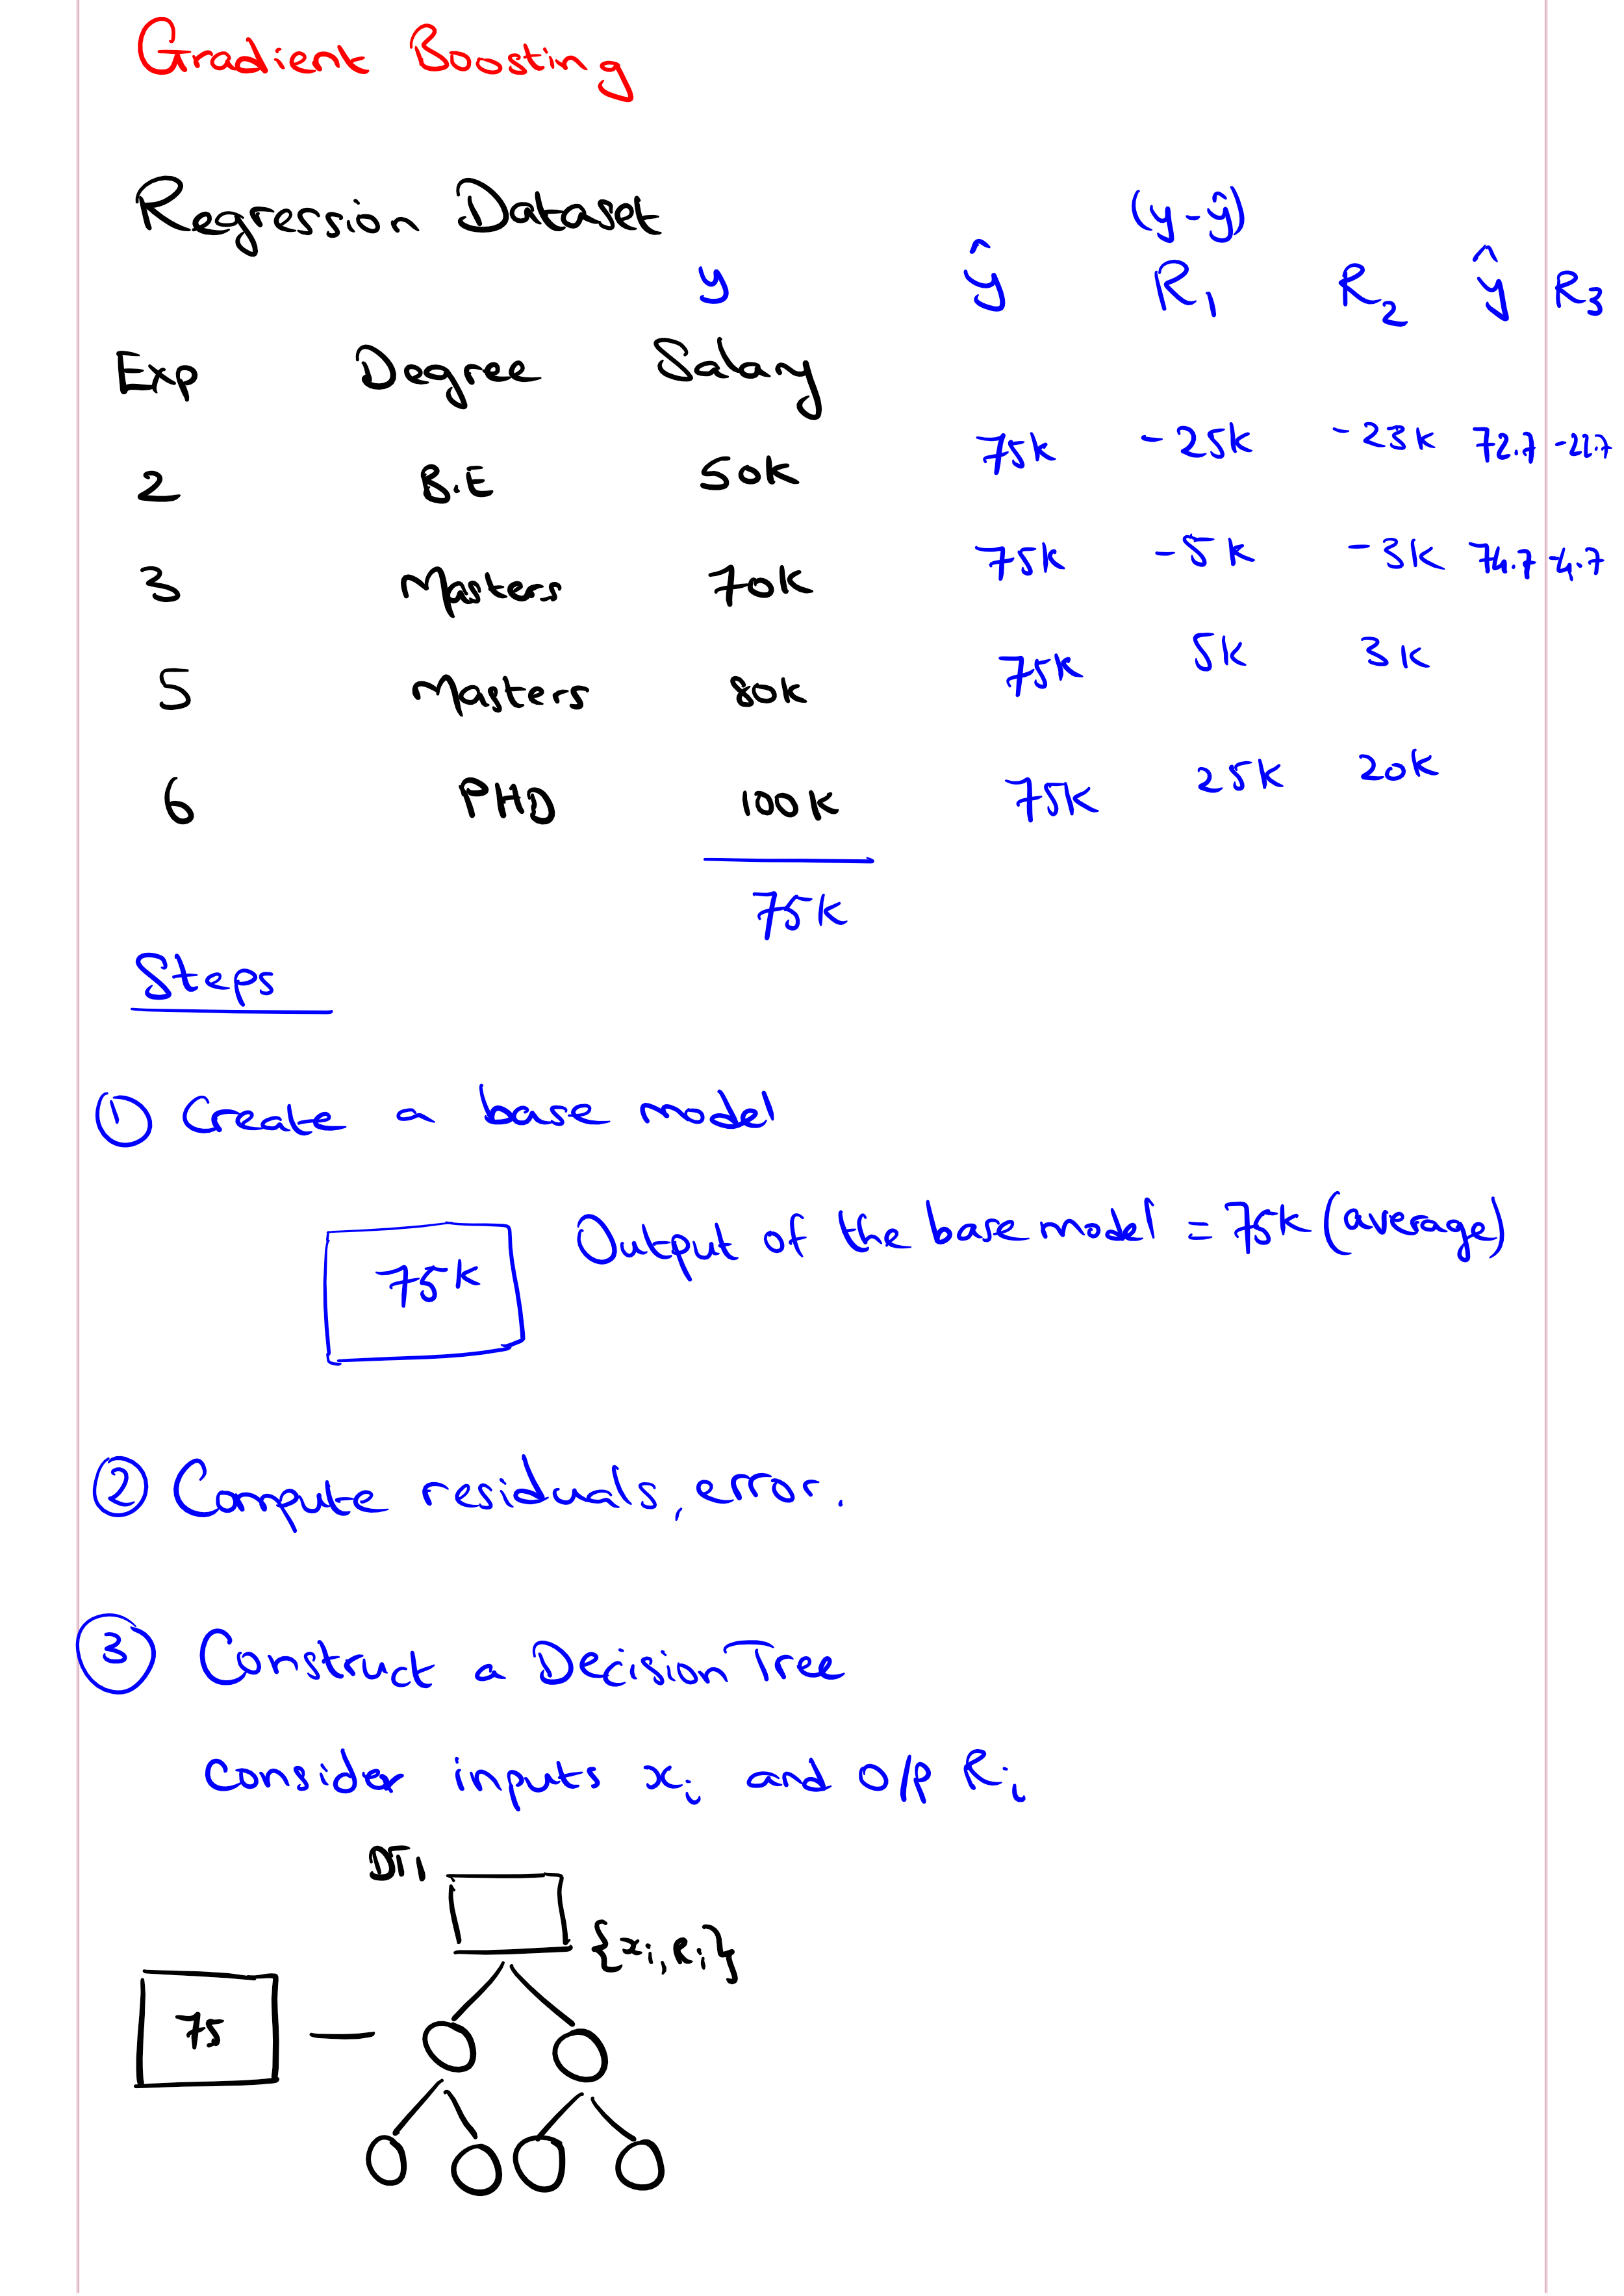 Gradient Boosting
Regression Dataset
(y-ŷ)
y ŷ R₁ R₂ ŷ R₃
Exp Degree Salary
2 B.E 50k 75k -25k -23k 72.7 -22.7
3 Masters 70k 75k -5k -3k 74.7 -4.7
5 Masters 80k 75k 5k 3k
6 PHD 100k 75k 25k 20k
75k
Steps
① Create a base model
75k Output of the base model = 75k (average)
② Compute residuals, error.
③ Construct a Decision Tree
consider inputs xᵢ and O/p Rᵢ
DT1
{xᵢ, Rᵢ}
75